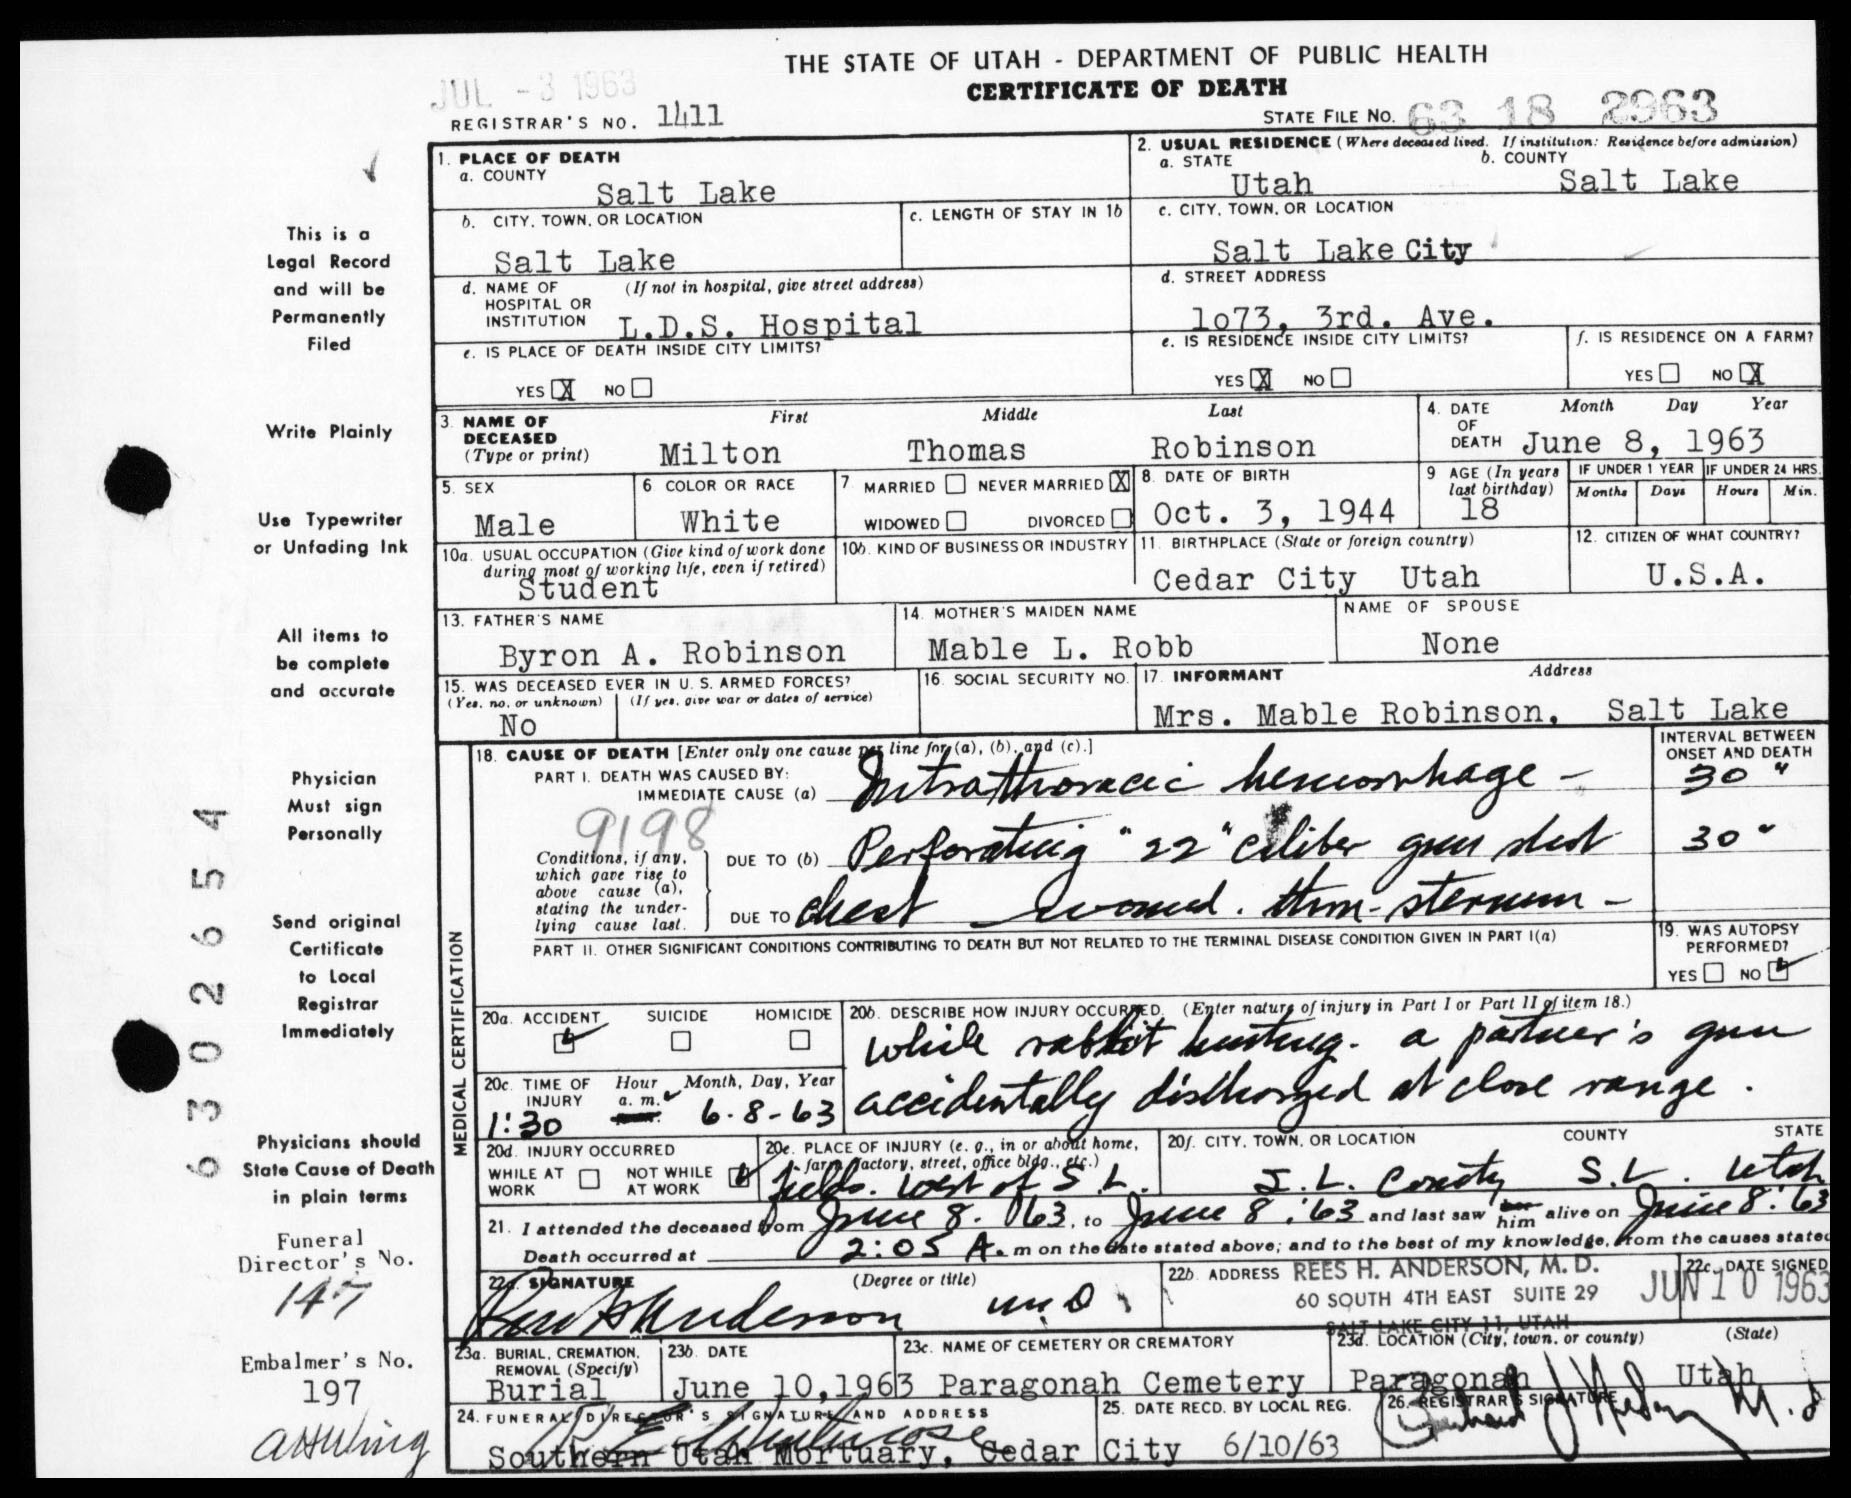 THE STATE OF UTAH - DEPARTMENT OF PUBLIC HEALTH
CERTIFICATE OF DEATH
JUL - 3 1963
REGISTRAR'S NO. 1411
STATE FILE NO. 63 18 2963
1. PLACE OF DEATH
a. COUNTY
Salt Lake
2. USUAL RESIDENCE (Where deceased lived. If institution: Residence before admission)
a. STATE b. COUNTY
Utah Salt Lake
b. CITY, TOWN, OR LOCATION
Salt Lake
c. LENGTH OF STAY IN 1b
c. CITY, TOWN, OR LOCATION
Salt Lake City
d. NAME OF HOSPITAL OR INSTITUTION (If not in hospital, give street address)
L.D.S. Hospital
d. STREET ADDRESS
1o73, 3rd. Ave.
e. IS PLACE OF DEATH INSIDE CITY LIMITS?
YES X NO
e. IS RESIDENCE INSIDE CITY LIMITS?
YES X NO
f. IS RESIDENCE ON A FARM?
YES NO X
3. NAME OF DECEASED (Type or print)
First Middle Last
Milton Thomas Robinson
4. DATE OF DEATH Month Day Year
June 8, 1963
5. SEX
Male
6 COLOR OR RACE
White
7. MARRIED NEVER MARRIED X
WIDOWED DIVORCED
8. DATE OF BIRTH
Oct. 3, 1944
9 AGE (In years last birthday)
18
IF UNDER 1 YEAR IF UNDER 24 HRS.
Months Days Hours Min.
10a. USUAL OCCUPATION (Give kind of work done during most of working life, even if retired)
Student
10b. KIND OF BUSINESS OR INDUSTRY
11. BIRTHPLACE (State or foreign country)
Cedar City Utah
12. CITIZEN OF WHAT COUNTRY?
U.S.A.
13. FATHER'S NAME
Byron A. Robinson
14. MOTHER'S MAIDEN NAME
Mable L. Robb
NAME OF SPOUSE
None
15. WAS DECEASED EVER IN U. S. ARMED FORCES?
(Yes, no, or unknown) (If yes, give war or dates of service)
No
16. SOCIAL SECURITY NO.
17. INFORMANT Address
Mrs. Mable Robinson, Salt Lake
MEDICAL CERTIFICATION
18. CAUSE OF DEATH [Enter only one cause per line for (a), (b), and (c).]
INTERVAL BETWEEN ONSET AND DEATH
PART I. DEATH WAS CAUSED BY:
IMMEDIATE CAUSE (a) Intrathoracic hemorrhage - 30 "
9198
Conditions, if any, which gave rise to above cause (a), stating the underlying cause last.
DUE TO (b) Perforating "22" caliber gun shot 30 "
DUE TO chest wound. thru-sternum -
PART II. OTHER SIGNIFICANT CONDITIONS CONTRIBUTING TO DEATH BUT NOT RELATED TO THE TERMINAL DISEASE CONDITION GIVEN IN PART I(a)
19. WAS AUTOPSY PERFORMED?
YES NO ✓
20a. ACCIDENT ✓ SUICIDE HOMICIDE
20b. DESCRIBE HOW INJURY OCCURRED. (Enter nature of injury in Part I or Part II of item 18.)
While rabbit hunting. a partner's gun
accidentally discharged at close range.
20c. TIME OF INJURY Hour Month, Day, Year
1:30 a. m. ✓ 6-8-63
20d. INJURY OCCURRED
WHILE AT WORK NOT WHILE AT WORK ✓
20e. PLACE OF INJURY (e. g., in or about home, farm, factory, street, office bldg., etc.)
fields. West of S.L.
20f. CITY, TOWN, OR LOCATION COUNTY STATE
S.L. County S.L. Utah
21. I attended the deceased from June 8. '63, to June 8, '63 and last saw him alive on June 8. '63
Death occurred at 2:05 A. m on the date stated above; and to the best of my knowledge, from the causes stated
22a. SIGNATURE (Degree or title)
Rees H Anderson M.D.
22b. ADDRESS REES H. ANDERSON, M. D.
60 SOUTH 4TH EAST SUITE 29
SALT LAKE CITY 11, UTAH
22c. DATE SIGNED
JUN 10 1963
23a. BURIAL, CREMATION, REMOVAL (Specify)
Burial
23b. DATE
June 10,1963
23c. NAME OF CEMETERY OR CREMATORY
Paragonah Cemetery
23d. LOCATION (City, town, or county) (State)
Paragonah Utah
24. FUNERAL DIRECTOR'S SIGNATURE AND ADDRESS
Southern Utah Mortuary, Cedar City
25. DATE RECD. BY LOCAL REG.
6/10/63
26. REGISTRAR'S SIGNATURE
M.D
This is a
Legal Record
and will be
Permanently
Filed
Write Plainly
Use Typewriter
or Unfading Ink
All items to
be complete
and accurate
Physician
Must sign
Personally
Send original
Certificate
to Local
Registrar
Immediately
Physicians should
State Cause of Death
in plain terms
Funeral
Director's No.
147
Embalmer's No.
197
6302654